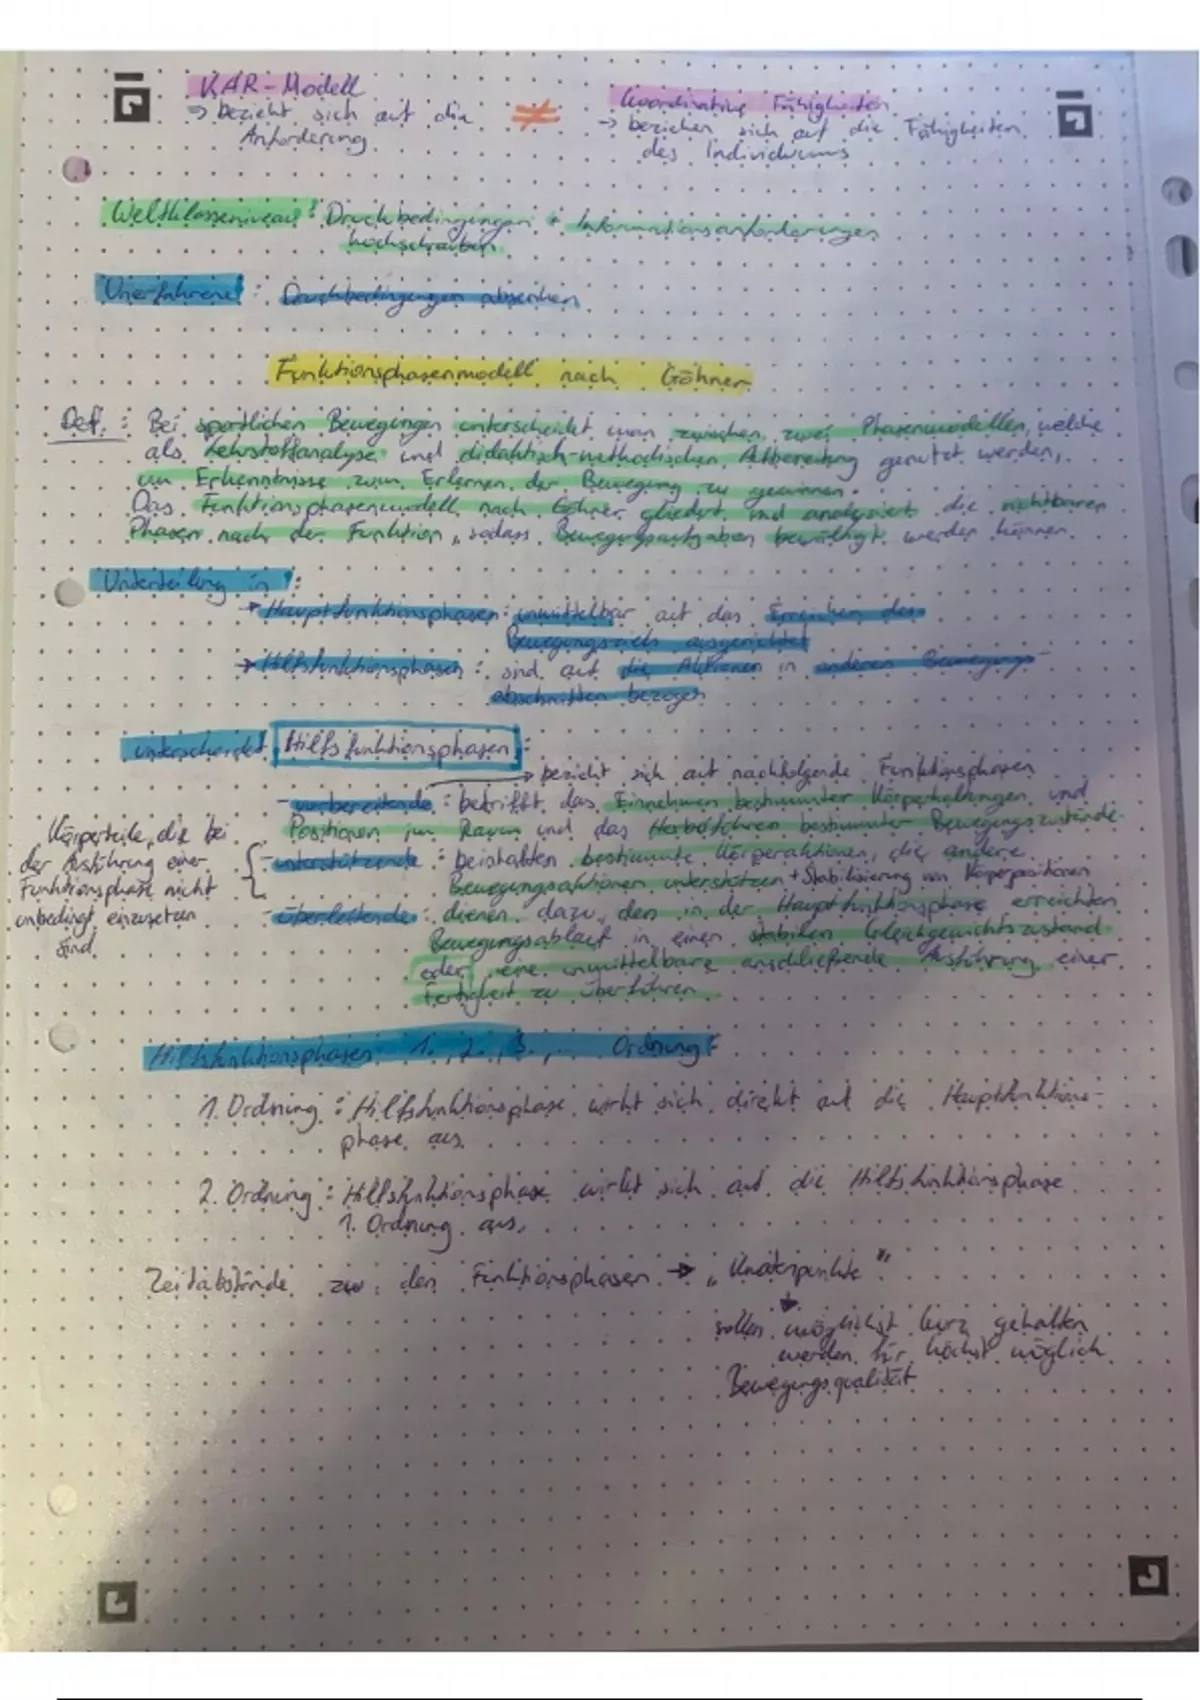 KAR-Modell ≠ Koordinative Fähigkeiten
⇒ bezieht sich auf die → beziehen sich auf die Fähigkeiten
Anforderung des Individuums
Weltklasseniveau: Druckbedingungen + Informationsanforderungen
hochschrauben
Unerfahrene: Druckbedingungen absenken
Funktionsphasenmodell nach Göhner
Def.: Bei sportlichen Bewegungen unterscheidet man zwischen zwei Phasenmodellen, welche
als Lehrstoffanalyse und didaktisch-methodischen Aufbereitung genutzt werden,
um Erkenntnisse zum Erlernen der Bewegung zu gewinnen.
Das Funktionsphasenmodell nach Göhner gliedert und analysiert die sichtbaren
Phasen nach der Funktion, sodass Bewegungsaufgaben bewältigt werden können.
Unterteilung in:
→ Hauptfunktionsphasen: unmittelbar auf das Erreichen des
Bewegungsziels ausgerichtet
→ Hilfsfunktionsphasen: sind auf die Aktionen in anderen Bewegungs-
abschnitten bezogen
unterscheidet Hilfsfunktionsphasen:
→ bezieht sich auf nachfolgende Funktionsphasen
- vorbereitende: betrifft das Einnehmen bestimmter Körperhaltungen und
Positionen im Raum und das Herbeiführen bestimmter Bewegungszustände
- unterstützende: beinhalten bestimmte Körperaktionen, die andere
Bewegungsaktionen unterstützen + Stabilisierung von Körperpositionen
- überleitende: dienen dazu, den in der Hauptfunktionsphase erreichten
Bewegungsablauf in einen stabilen Gleichgewichtszustand
oder eine unmittelbare anschließende Ausführung einer
Fertigkeit zu überführen
Körperteile, die bei
der Ausführung einer
Funktionsphase nicht
unbedingt einzusetzen
sind.
Hilfsfunktionsphasen 1., 2., 3., ... Ordnung:
1. Ordnung: Hilfsfunktionsphase wirkt sich direkt auf die Hauptfunktions-
phase aus.
2. Ordnung: Hilfsfunktionsphase wirkt sich auf die Hilfsfunktionsphase
1. Ordnung aus.
Zeitabstände zw. den Funktionsphasen → „Knotenpunkte"
sollen möglichst kurz gehalten
werden für höchst möglich
Bewegungsqualität